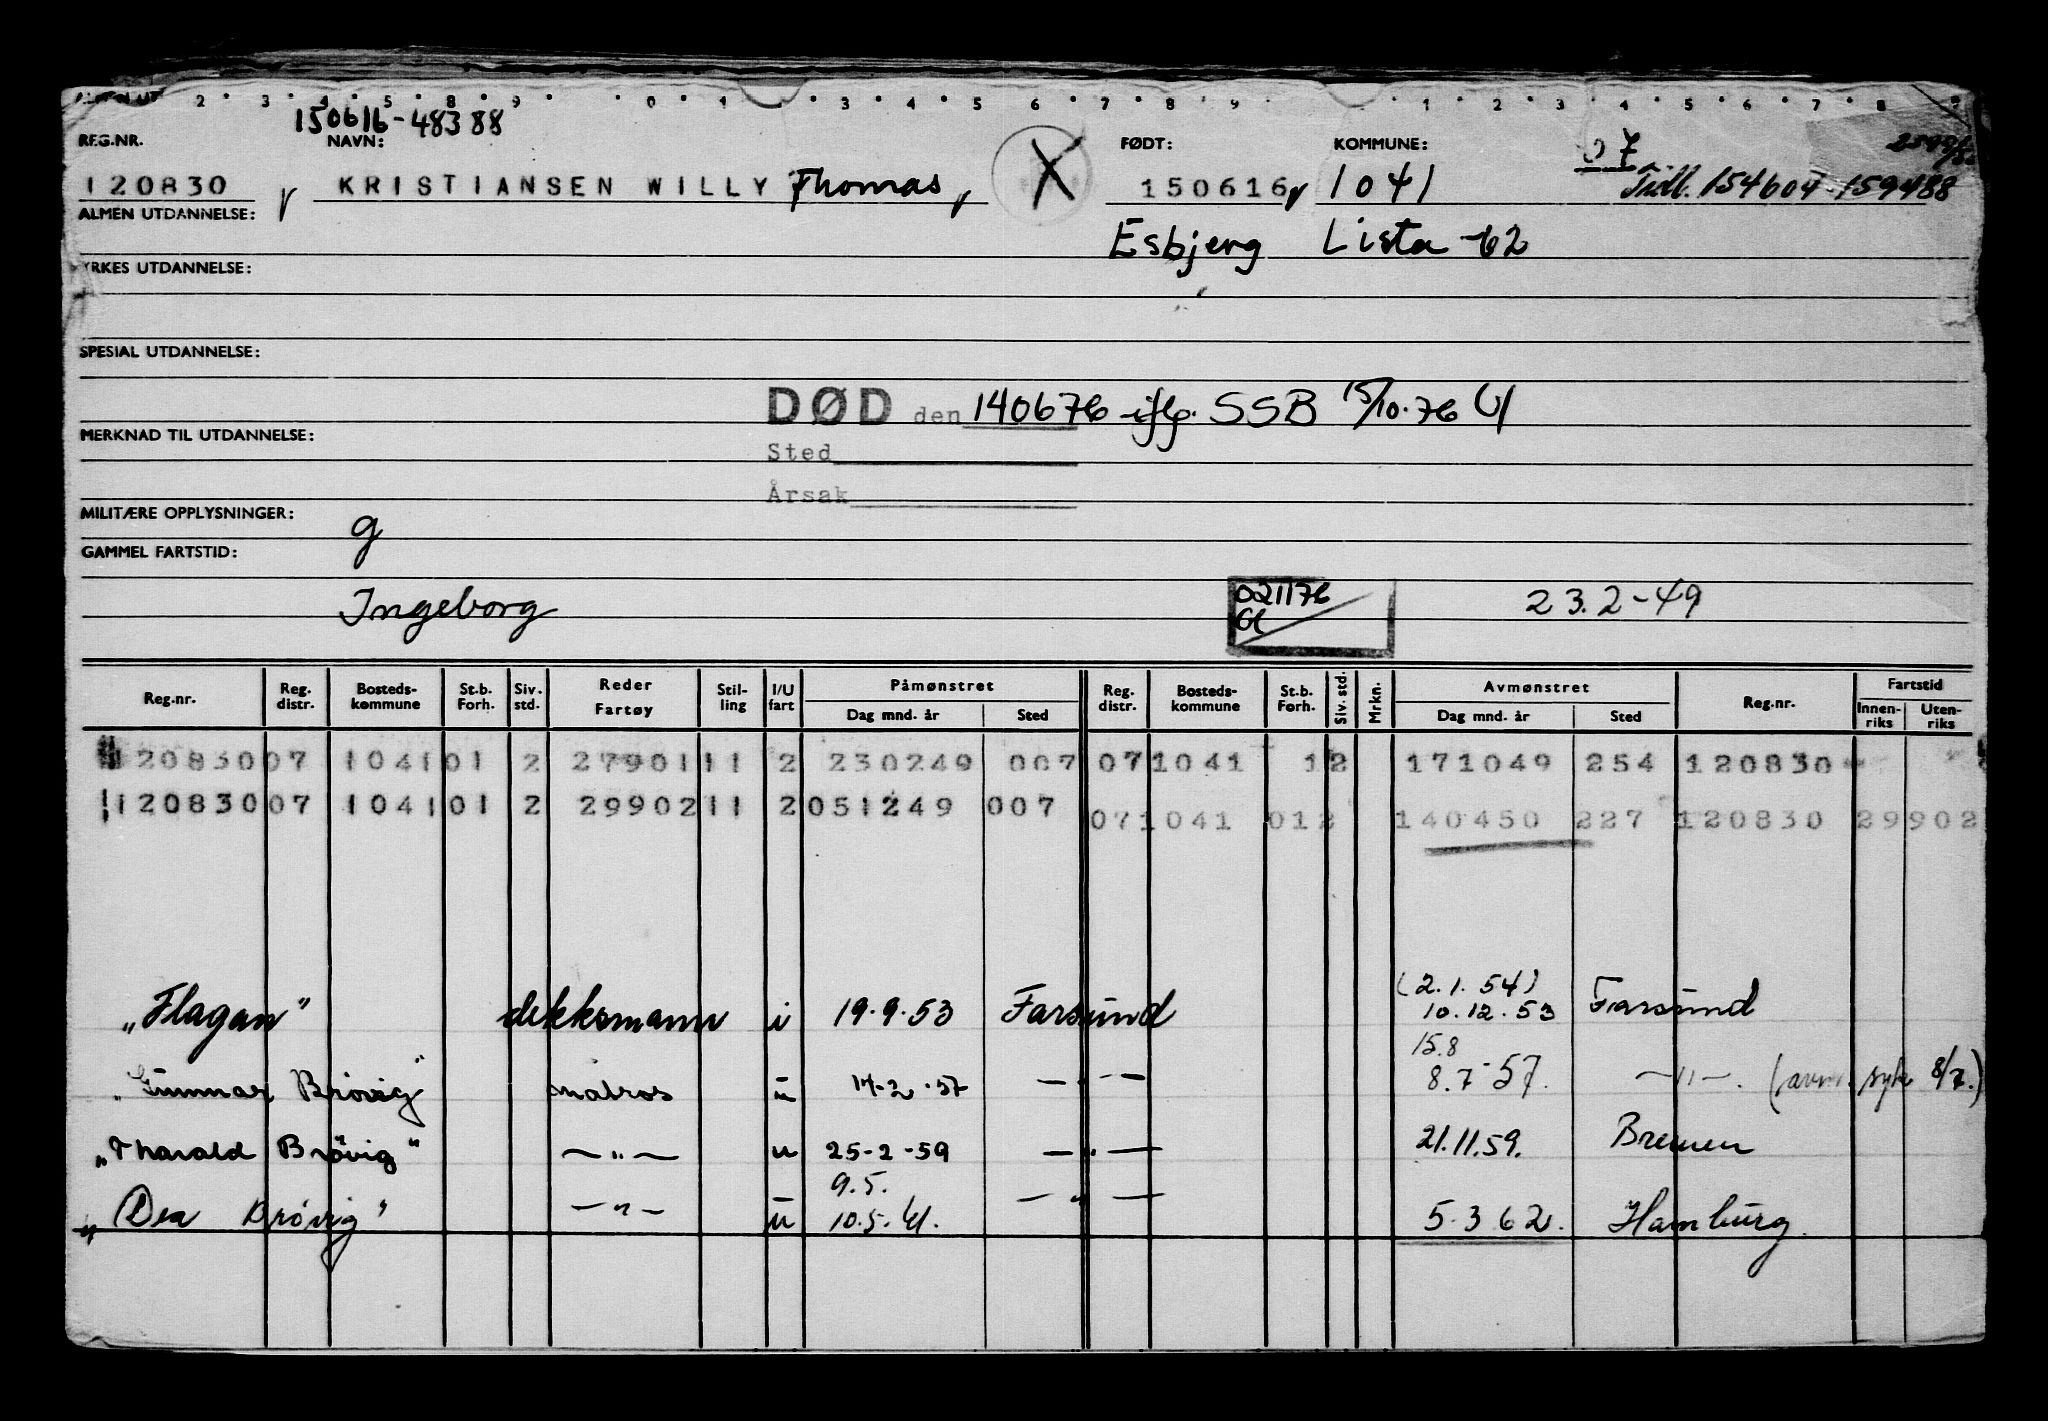 2 3 4 5 8 9 0 1 3 4 5 6 7 8 9 1 2 3 4 5 6 7 8 9
150616-48388
REG.NR. NAVN: FØDT: KOMMUNE: 07
120830 KRISTIANSEN WILLY Thomas, X 150616 1041 Tidl. 154604 159488
ALMEN UTDANNELSE:
Esbjerg Lista -62
YRKES UTDANNELSE:
SPESIAL UTDANNELSE:
DØD den 140676 iflg. SSB 15/10.76
MERKNAD TIL UTDANNELSE:
Sted
Årsak
MILITÆRE OPPLYSNINGER: g
GAMMEL FARTSTID:
Ingeborg 021176 23.2-49
Reg.nr. Reg. distr. Bosteds-kommune St.b. Forh. Siv. std. Reder Fartøy Stil-ling I/U fart Påmønstret Dag mnd. år Sted Reg. distr. Bosteds-kommune St.b. Forh. Siv. std. Mrkn. Avmønstret Dag mnd. år Sted Reg.nr. Fartstid Innen-riks Uten-riks
120830 07 1041 01 2 27901 11 2 230249 007 07 1041 1 2 171049 254 120830
120830 07 1041 01 2 29902 11 2 051249 007 071041 012 140450 227 120830 29902
(2.1.54)
„Flagan" dekksmann i 19.9.53 Farsund 10.12.53 Farsund
15.8
„Gunnar Brøvig" matros u 14-2-57 —"— 8.7-57. —"—. (avm. syk 8/7.)
„Tharald Brøvig" —"— u 25-2-59 —"— 21.11.59. Bremen
9.5.
„Dea Brøvig" —"— u 10.5.61. —"— 5.3 62. Hamburg.